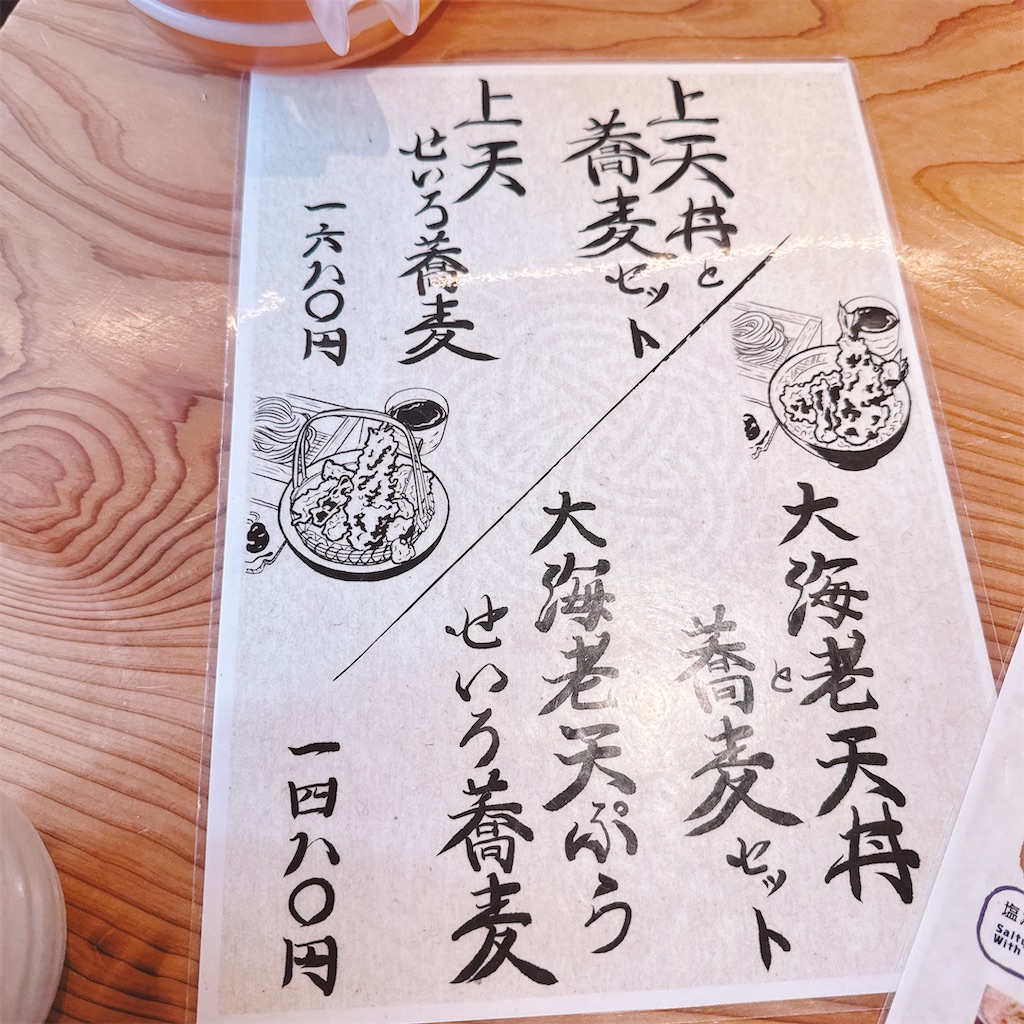 上天丼と
蕎麦セット
上天
せいろ蕎麦
一六八〇円
大海老天丼
と
蕎麦セット
大海老天ぷら
せいろ蕎麦
一四八〇円
塩
With